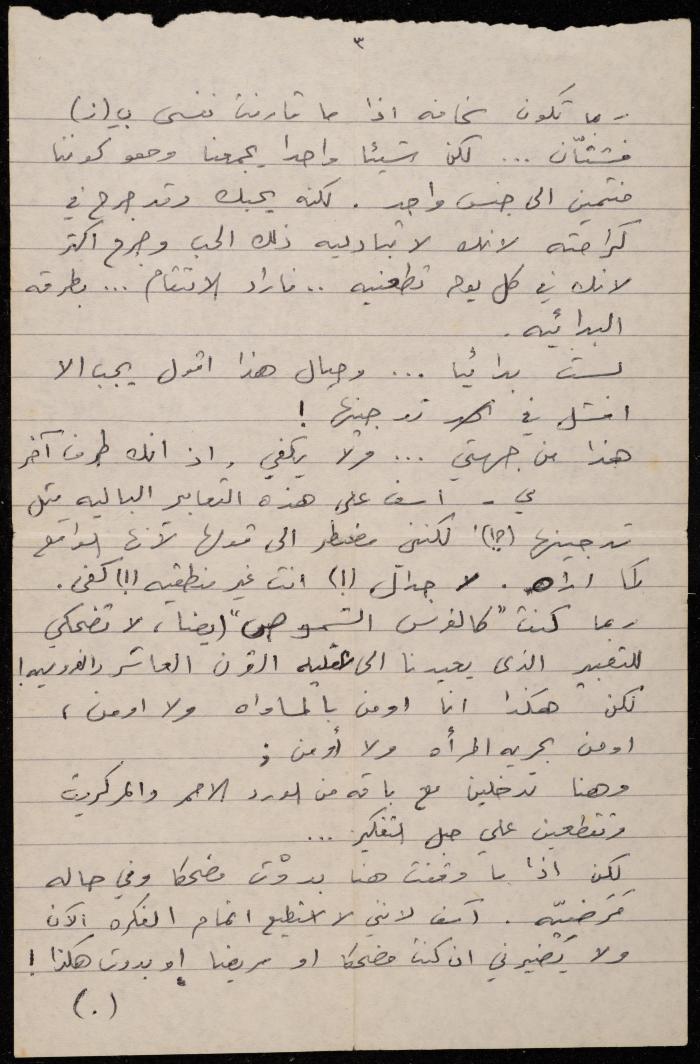 ٣
ربما تكون سخافه اذا ما قارنت نفسي بـ (ز)
فشتّان ... لكن شيئا واحدا يجمعنا وهو كوننا
ننتمين الى جنس واحد . لكنه يحبك وقد جرح في
كرامته لانك لا تبادليه ذلك الحب وجرح اكثر
لانك في كل يوم تطعنيه .. فاراد الانتقام ... بطرقه
البدائيه .
لست بدائيا ... وحيال هذا اقول يجب الا
افشل في تدجينها !
هذا من جهتي ... ولا يكفي , اذ انك طرف آخر
لي - اسف على هذه التعابير الباليه مثل
تدجينها (!؟) لكنني مضطر الى قولها لأنها الواقع
كما اراه . لا جدال (!) انت غير منطقيه (!) كفى .
ربما كنت "كالفرس الشموص" ايضا ، لا تضحكي
للتعبير الذى يعيدنا الى عقليه القرن العاشر والفروسيه !
لكن هكذا انا اومن بالمساواه ولا اومن ،
اومن بحريه المرأه ولا أومن ;
وهنا تدخلين مع باقه من الورد الاحمر والمركريت
وتقطعين علي حبل التفكير ...
لكن اذا ما وقفت هنا بدوْت مضحكا وفي حاله
مَرَضيّه . آسف لانني لا استطيع اتمام الفكره الآن
ولا يَضيرني ان كنت مضحكا او مريضا او بدوت هكذا !
(.)